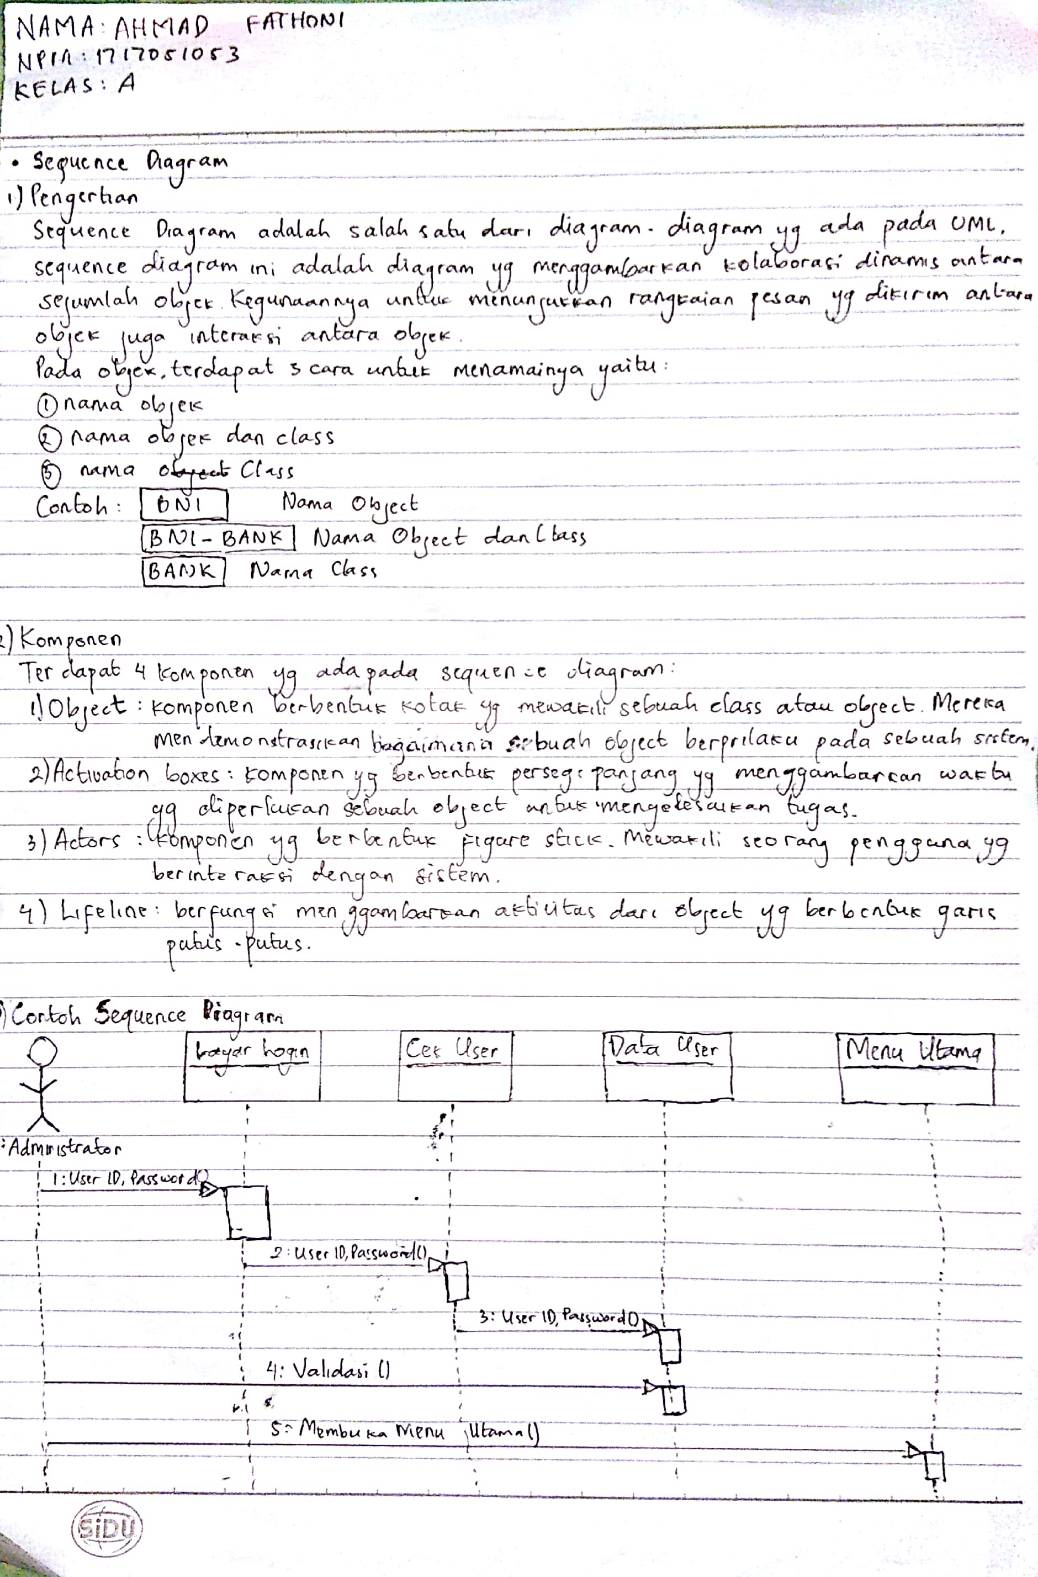 NAMA: AHMAD FATHONI
NPM: 1717051053
KELAS: A
• Sequence Diagram
1) Pengertian
Sequence Diagram adalah salah satu dari diagram-diagram yg ada pada UML,
sequence diagram ini adalah diagram yg menggambarkan kolaborasi dinamis antara
sejumlah objek. Kegunaannya untuk menunjukkan rangkaian pesan yg dikirim antara
objek juga interaksi antara objek.
Pada objek, terdapat 3 cara untuk menamainya yaitu:
① nama objek
② nama objek dan class
③ nama object Class
Contoh: BNI Nama Object
BNI-BANK Nama Object dan Class
BANK Nama Class
2) Komponen
Terdapat 4 komponen yg ada pada sequence diagram:
1) Object: komponen berbentuk kotak yg mewakili sebuah class atau object. Mereka
mendemonstrasikan bagaimana sebuah object berprilaku pada sebuah sistem.
2) Activation boxes: komponen yg berbentuk persegi panjang yg menggambarkan waktu
yg diperlukan sebuah object untuk mengelesaikan tugas.
3) Actors: komponen yg berbentuk figure stick. Mewakili seorang pengguna yg
berinteraksi dengan sistem.
4) Lifeline: berfungsi menggambarkan aktivitas dari object yg berbentuk garis
putus-putus.
) Contoh Sequence Diagram
Layar Login Cek User Data User Menu Utama
:Administrator
1: User ID, Password()
2: User ID, Password()
3: User ID, Password()
4: Validasi ()
5: Membuka Menu Utama()
SiDU